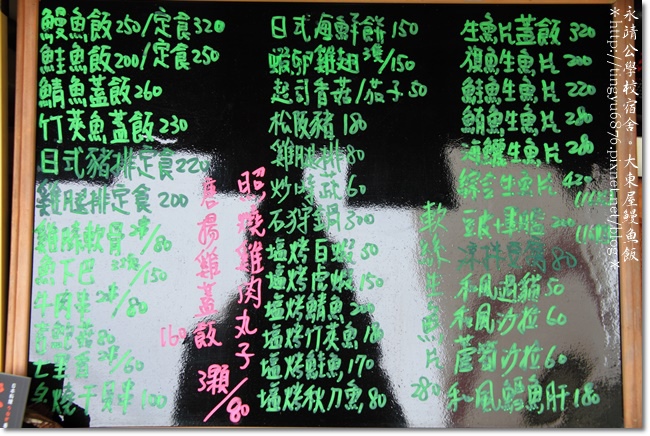 鰻魚飯250/定食320
鮭魚飯200/定食250
鯖魚蓋飯260
竹莢魚蓋飯230
日式豬排定食220
雞腿排定食200
雞腿軟骨2串/80
魚下巴 /150
2串/80
80
2串/60
夕燒干貝串100
唐揚雞蓋飯160
照燒雞肉丸子3顆/80
日式海鮮餅150
蝦卵雞翅2隻/150
起司香菇/茄子50
松阪豬180
雞腿排80
炒時蔬60
石狩鍋300
塩烤白蝦50
塩烤虎蝦150
塩烤鯖魚200
塩烤竹莢魚180
塩烤鮭魚170
塩烤秋刀魚80
軟絲生魚片280
生魚片蓋飯320
旗魚生魚片200
鮭魚生魚片220
鮪魚生魚片280
海鱺生魚片280
綜合生魚片420
200
80
和風過貓50
和風沙拉60
蘆筍沙拉60
和風鱈魚肝180
永靖公學校宿舍。大東屋鰻魚飯
*http://tingyu6876.pixnet.net/blog*